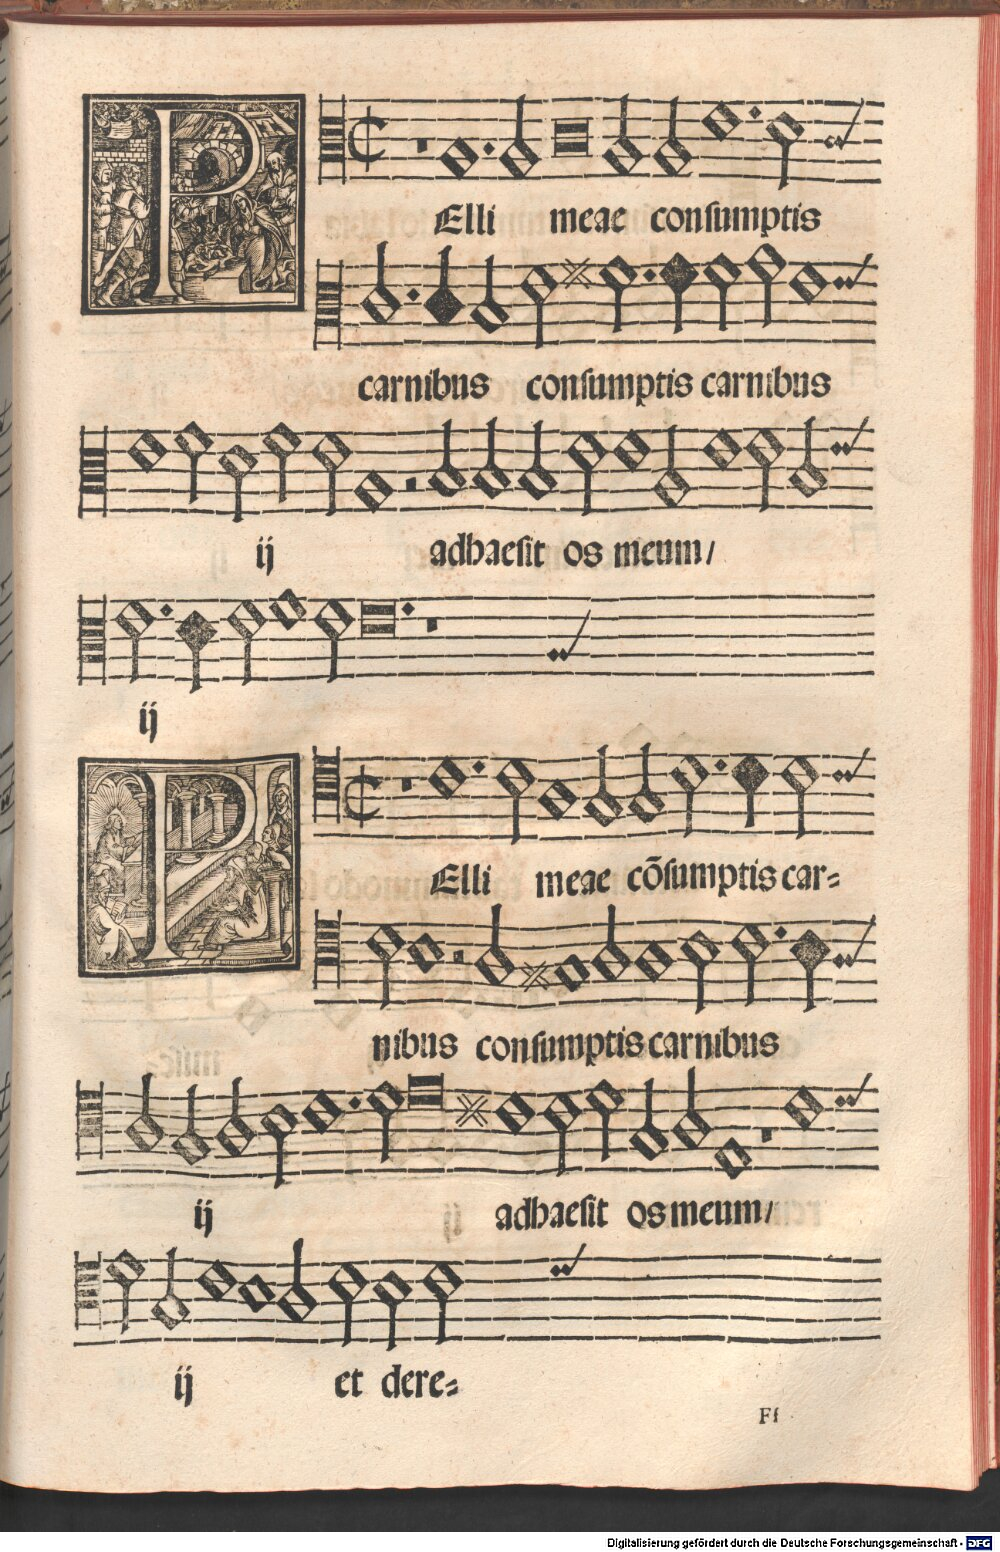 PElli meae conſumptis
carnibus conſumptis carnibus
ij adhaeſit os meum/
ij
PElli meae cõſumptis car⸗
nibus conſumptis carnibus
ij adhaeſit os meum/
ij et dere⸗
Ff
Digitalisierung gefördert durch die Deutsche Forschungsgemeinschaft - DFG